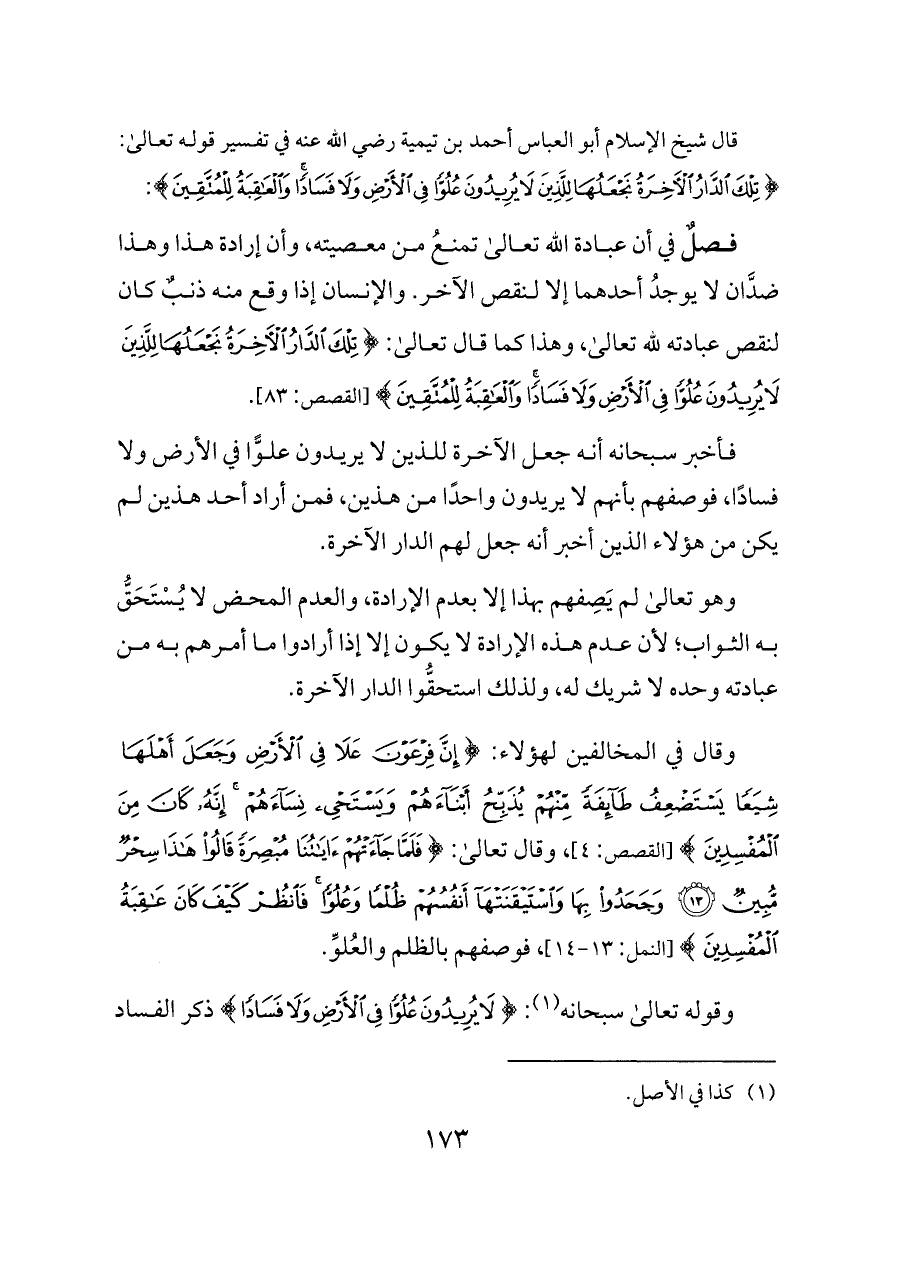 قال شيخ الإسلام أبو العباس أحمد بن تيمية رضي الله عنه في تفسير قوله تعالىٰ:
﴿ تِلْكَ ٱلدَّارُ ٱلْأَخِرَةُ نَجْعَلُهَا لِلَّذِينَ لَا يُرِيدُونَ عُلُوًّا فِى ٱلْأَرْضِ وَلَا فَسَادًا ۚ وَٱلْعَٰقِبَةُ لِلْمُتَّقِينَ ﴾:
فـصلٌ في أن عبـادة الله تعـالىٰ تمنـعُ مـن معـصيته، وأن إرادة هـذا وهـذا
ضدَّان لا يوجدُ أحدهما إلا لـنقص الآخـر. والإنـسان إذا وقـع منـه ذنـبٌ كـان
لنقص عبادته لله تعالىٰ، وهذا كما قـال تعـالىٰ: ﴿ تِلْكَ ٱلدَّارُ ٱلْأَخِرَةُ نَجْعَلُهَا لِلَّذِينَ
لَا يُرِيدُونَ عُلُوًّا فِى ٱلْأَرْضِ وَلَا فَسَادًا ۚ وَٱلْعَٰقِبَةُ لِلْمُتَّقِينَ ﴾ [القصص: ٨٣].
فـأخبر سـبحانه أنـه جعـل الآخـرة للـذين لا يريـدون علـوًّا في الأرض ولا
فسادًا، فوصفهم بأنهم لا يريدون واحدًا مـن هـذين، فمـن أراد أحـد هـذين لـم
يكن من هؤلاء الذين أخبر أنه جعل لهم الدار الآخرة.
وهو تعالىٰ لم يَصِفهم بهذا إلا بعدم الإرادة، والعدم المحض لا يُسْتَحَقُّ
بـه الثـواب؛ لأن عـدم هـذه الإرادة لا يكـون إلا إذا أرادوا مـا أمـرهم بـه مـن
عبادته وحده لا شريك له، ولذلك استحقُّوا الدار الآخرة.
وقال في المخالفين لهؤلاء: ﴿ إِنَّ فِرْعَوْنَ عَلَا فِى ٱلْأَرْضِ وَجَعَلَ أَهْلَهَا
شِيَعًا يَسْتَضْعِفُ طَآئِفَةً مِّنْهُمْ يُذَبِّحُ أَبْنَآءَهُمْ وَيَسْتَحْىِۦ نِسَآءَهُمْ ۚ إِنَّهُۥ كَانَ مِنَ
ٱلْمُفْسِدِينَ ﴾ [القصص: ٤]، وقال تعالىٰ: ﴿ فَلَمَّا جَآءَتْهُمْ ءَايَٰتُنَا مُبْصِرَةً قَالُوا۟ هَٰذَا سِحْرٌ
مُّبِينٌ ١٣ وَجَحَدُوا۟ بِهَا وَٱسْتَيْقَنَتْهَآ أَنفُسُهُمْ ظُلْمًا وَعُلُوًّا ۚ فَٱنظُرْ كَيْفَ كَانَ عَٰقِبَةُ
ٱلْمُفْسِدِينَ ﴾ [النمل: ١٣-١٤]، فوصفهم بالظلم والعُلوِّ.
وقوله تعالىٰ سبحانه(١): ﴿ لَا يُرِيدُونَ عُلُوًّا فِى ٱلْأَرْضِ وَلَا فَسَادًا ﴾ ذكر الفـساد
(١) كذا في الأصل.
١٧٣